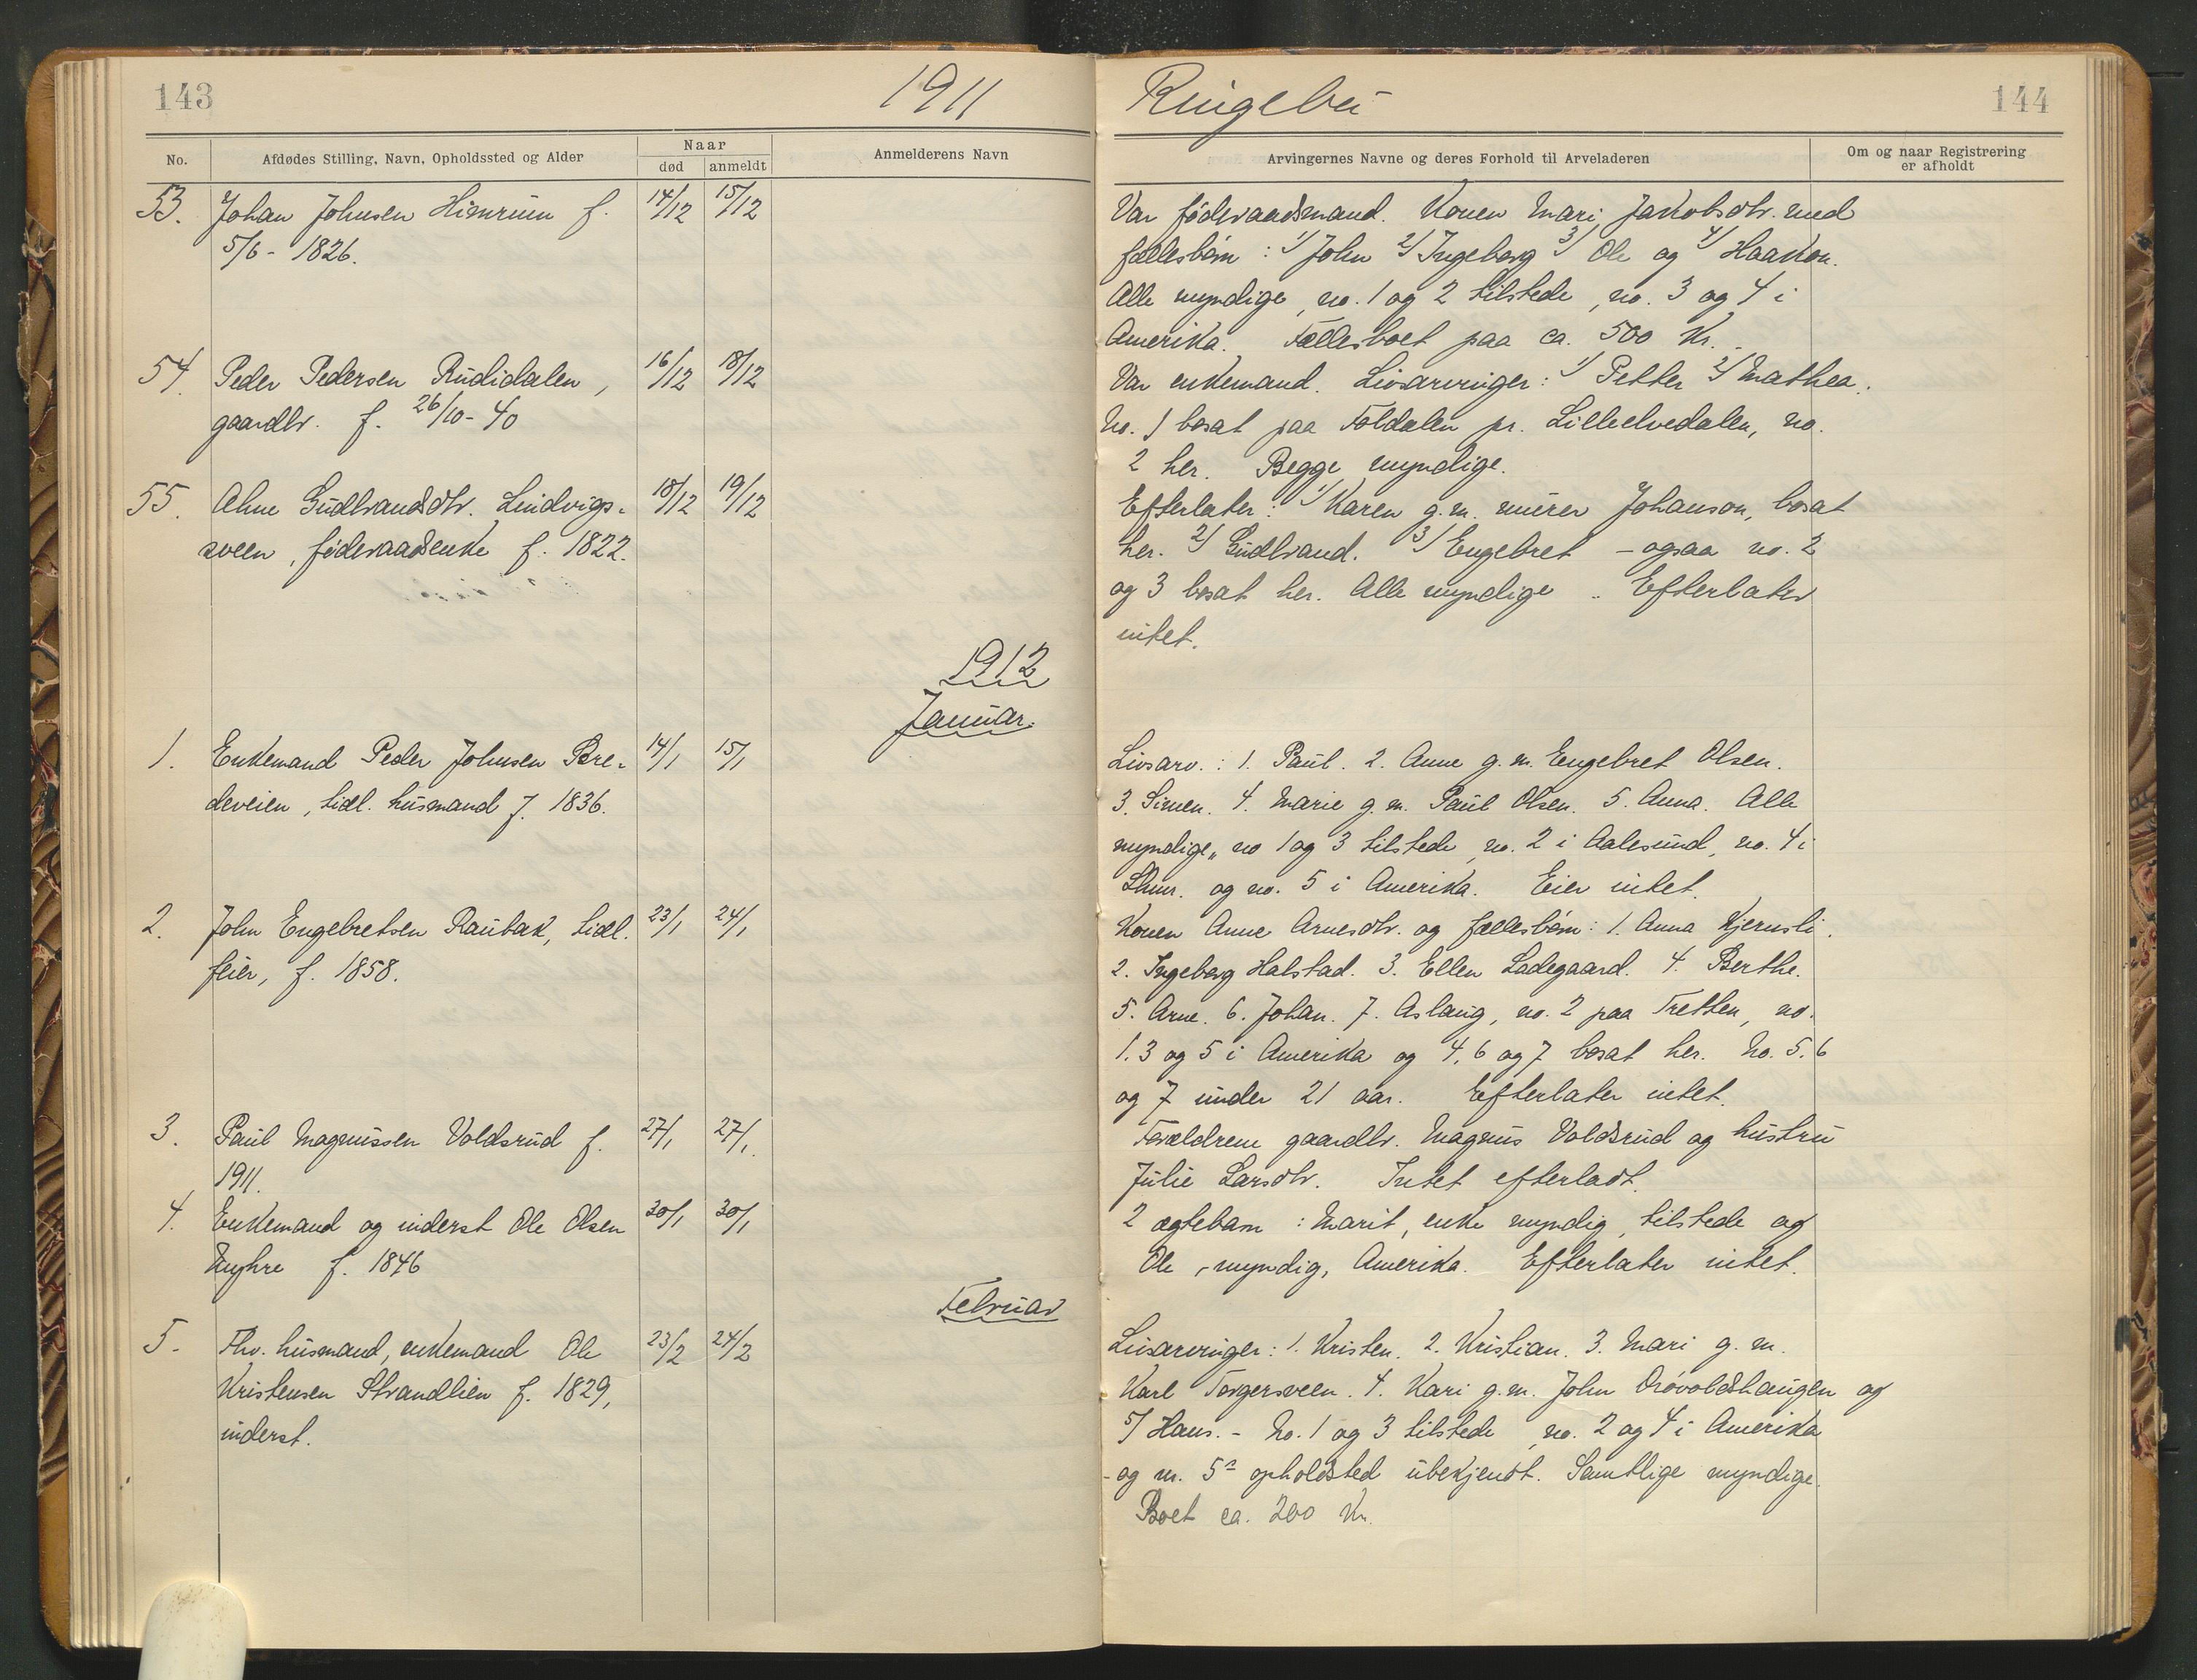 143
1911
Ringebu
144
No.
Afdødes Stilling, Navn, Opholdssted og Alder
Naar
død
anmeldt
Anmelderens Navn
Arvingernes Navne og deres Forhold til Arveladeren
Om og naar Registrering
er afholdt
53. Johan Johnsen Himrum f. 14/12 15/12
5/6 - 1826.
Var føderaadsmand. Konen Mari Jakobsdtr. med
fællesbørn : 1/ John 2/ Ingeborg 3/ Ole og 4/ Haakon.
Alle myndige, no. 1 og 2 tilstede, no. 3 og 4 i
Amerika. Fællesboet paa ca. 500 Kr.
54. Peder Pedersen Rudidalen, 16/12 18/12
gaardbr. f. 26/10-40
Var enkemand. Livsarvinger: 1/ Petter 2/ Mathea.
No. 1 bosat paa Foldalen pr. Lilleelvedalen, no.
2 her. Begge myndige.
55. Ahne Gudbrandsdtr. Lindvigs- 18/12 19/12
sveen, føderaadsenke f. 1822.
Efterlater: 1/ Karen g.m. murer Johanson, bosat
her. 2/ Gudbrand. 3/ Engebret - ogsaa no. 2
og 3 bosat her. Alle myndige .. Efterlater
intet.
1912
Januar.
1. Enkemand Peder Johnsen Bre- 14/1 15/1
deveien, tidl. husmand f. 1836.
Livsarv. : 1. Paul. 2. Anne g.m. Engebret Olsen.
3. Simen. 4. Marie g.m. Paul Olsen. 5. Anna. Alle
myndige, no 1 og 3 tilstede, no. 2 i Aalesund, no. 4 i
Lhmr. og no. 5 i Amerika. Eier intet.
2. John Engebretsen Raubak, tidl. 23/1 24/1
feier, f. 1858.
Konen Anne Arnesdtr. og fællesbørn: 1. Anna Kjernsli.
2. Ingeborg Halstad. 3. Ellen Ladegaard. 4. Berthe.
5. Arne. 6. Johan. 7. Aslaug, no. 2 paa Tretten, no.
1. 3 og 5 i Amerika og 4, 6 og 7 bosat her. No. 5. 6
og 7 under 21 aar. Efterlater intet.
3. Paul Magnussen Voldsrud f. 27/1 27/1.
1911.
Forældrene gaardbr. Magnus Voldsrud og hustru
Julie Larsdtr. Intet efterladt.
4. Enkemand og inderst Ole Olsen 30/1 30/1
Nyhre f. 1846
2 ægtebarn : Marit, enke myndig, tilstede og
Ole, myndig, Amerika. Efterlater intet.
Februar
5. Fhv. husmand, enkemand Ole 23/2 24/2
Kristensen Strandlien f. 1829,
inderst.
Livsarvinger: 1. Kristen. 2. Kristian. 3. Mari g.m.
Karl Torgersveen. 4. Kari g.m. John Prøvoldshaugen og
5/ Hans. - No. 1 og 3 tilstede, no. 2 og 4 i Amerika
- og nr. 5s opholdsted ubekjendt. Samtlige myndige.
Boet ca. 200 Kr.